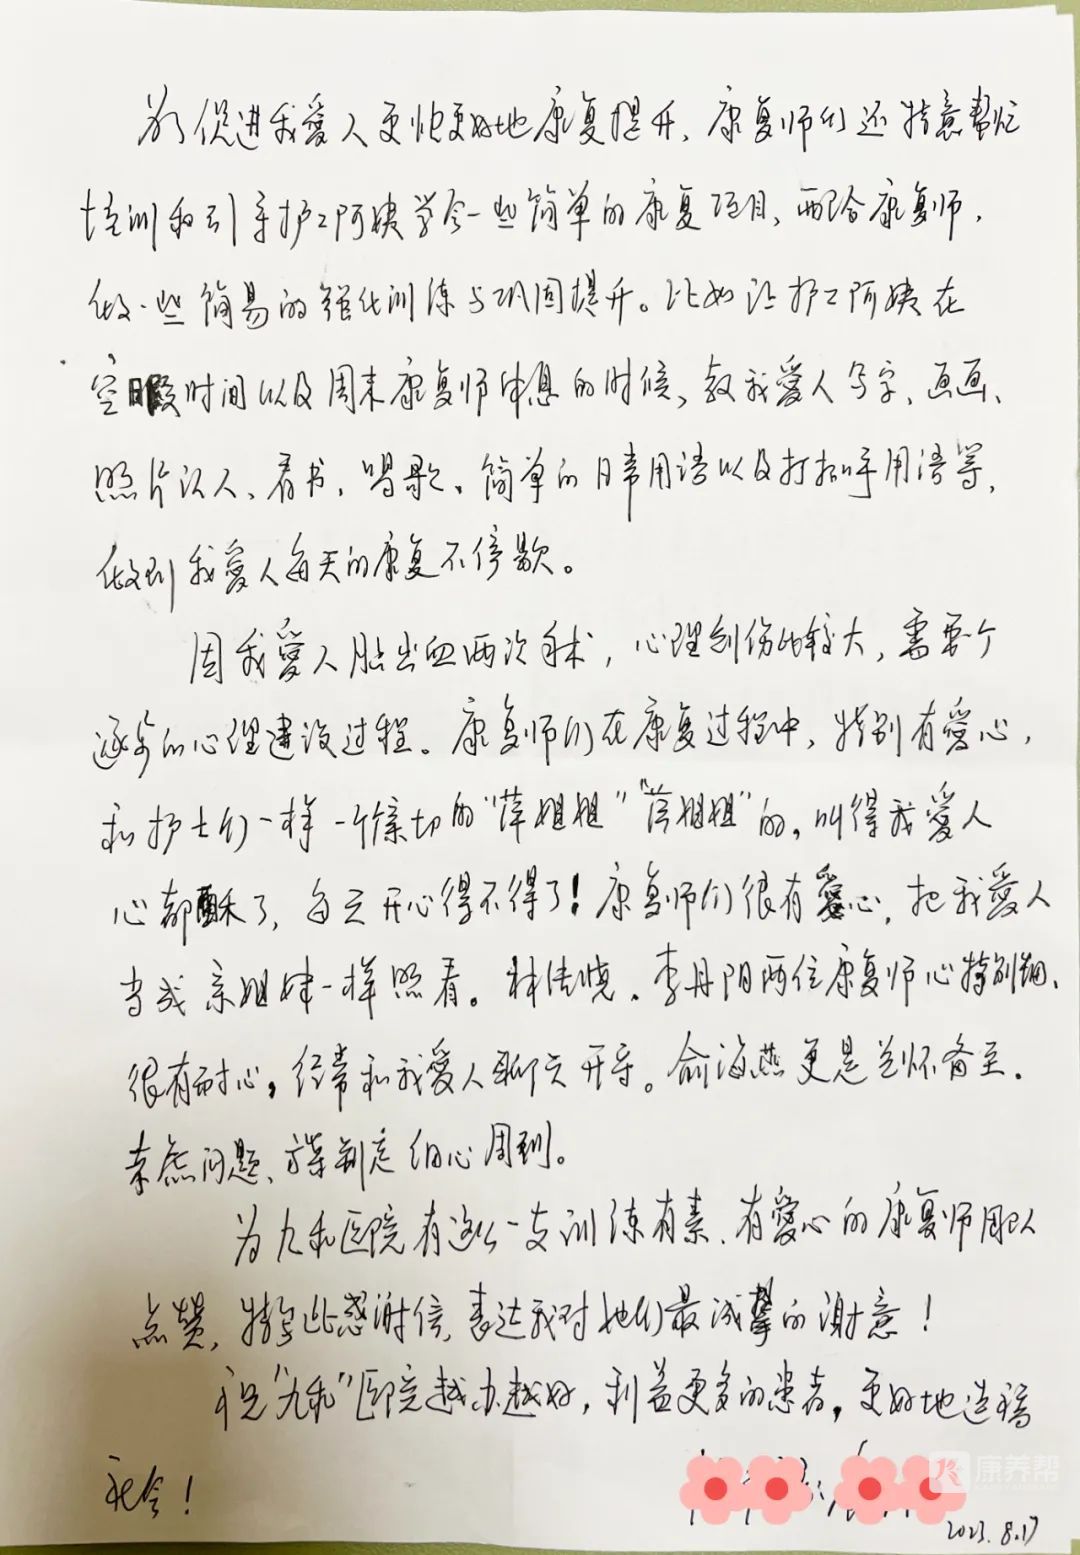 为了促进我爱人更快更好地康复提升、康复师们还特意帮忙
培训和引导护工阿姨学会一些简单的康复项目、配合康复师，
做一些简易的强化训练与巩固提升。比如让护工阿姨在
空暇时间以及周末康复师休息的时候、教我爱人写字、画画、
照片认人、看书、唱歌、简单的日常用语以及打招呼用语等，
做到我爱人每天的康复不停歇。
因我爱人脑出血两次手术，心理创伤比较大，需要个
逐步的心理建设过程。康复师们在康复过程中，特别有爱心，
和护士们一样一个亲切的“萍姐姐”“萍姐姐”的，叫得我爱人
心都酥了，每天开心得不得了！康复师们很有爱心，把我爱人
当成亲姐妹一样照看。林佳晓、李丹阳两位康复师心特别细、
很有耐心，经常和我爱人聊天开导。俞海燕更是关怀备至，
考虑问题、方案制定细心周到。
为九和医院有这么一支训练有素、有爱心的康复师团队
点赞，特写此感谢信，表达我对她们最诚挚的谢意！
祝“九和”医院越办越好，利益更多的患者，更好地造福
社会！
2023.8.17
康养帮